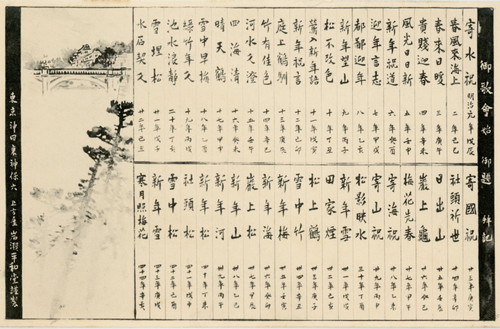 御歌會始 御題
寄水祝 明治元年戊辰
春風来海上 二年己巳
春来日暖 三年庚午
貴賤迎春 四年辛未
風光日新 五年壬申
新年祝道 六年癸酉
迎年言志 七年甲戌
都鄙迎年 八年乙亥
新年望山 九年丙子
松不改色 十年丁丑
鶯入新年語 十一年戊寅
新年祝言 十二年己卯
庭上鶴馴 十三年庚辰
竹有佳色 十四年辛巳
河水久澄 十五年壬午
四海清 十六年癸未
晴天鶴 十七年甲申
雪中早梅 十八年乙酉
緑竹年久 十九年丙戌
池水浪静 二十年丁亥
雪埋松 廿一年戊子
水石契久 廿二年己丑
寄國祝 廿三年庚寅
社頭祈世 廿四年辛卯
日出山 廿五年壬辰
巌上龜 廿六年癸巳
梅花先春 廿七年甲午
寄海祝 廿八年乙未
寄山祝 廿九年丙申
松影映水 三十年丁酉
新年雪 卅一年戊戌
田家煙 卅二年己亥
松上鶴 卅三年庚子
雪中竹 卅四年辛丑
新年梅 卅五年壬寅
新年海 卅六年癸卯
巌上松 卅七年甲辰
新年山 卅八年乙巳
新年河 卅九年丙午
新年松 四十年丁未
社頭松 四十一年戊申
雪中松 四十二年己酉
新年雪 四十三年庚戌
寒月照梅花 四十四年辛亥
東京神田裏神保六 上方屋岩瀬平和堂謹製